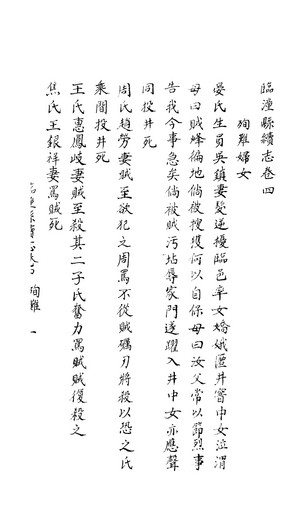 臨潼縣續志卷四
殉難婦女
晏氏生員吳鎮妻髮逆擾臨邑率女嬌娥匿井窨中女泣謂
母曰賊蜂徧地倘被搜獲何以自保母曰汝父常以節烈事
告我今事急矣倘被賊污玷辱家門遂躍入井中女亦應聲
同投井死
周氏趙勞妻賊至欲犯之周罵不從賊礪刃將殺以恐之氏
乘間投井死
王氏惠鳳岐妻賊至殺其二子氏奮力罵賊賊復殺之
焦氏王銀祥妻罵賊死
臨潼縣續志卷四 殉難 一